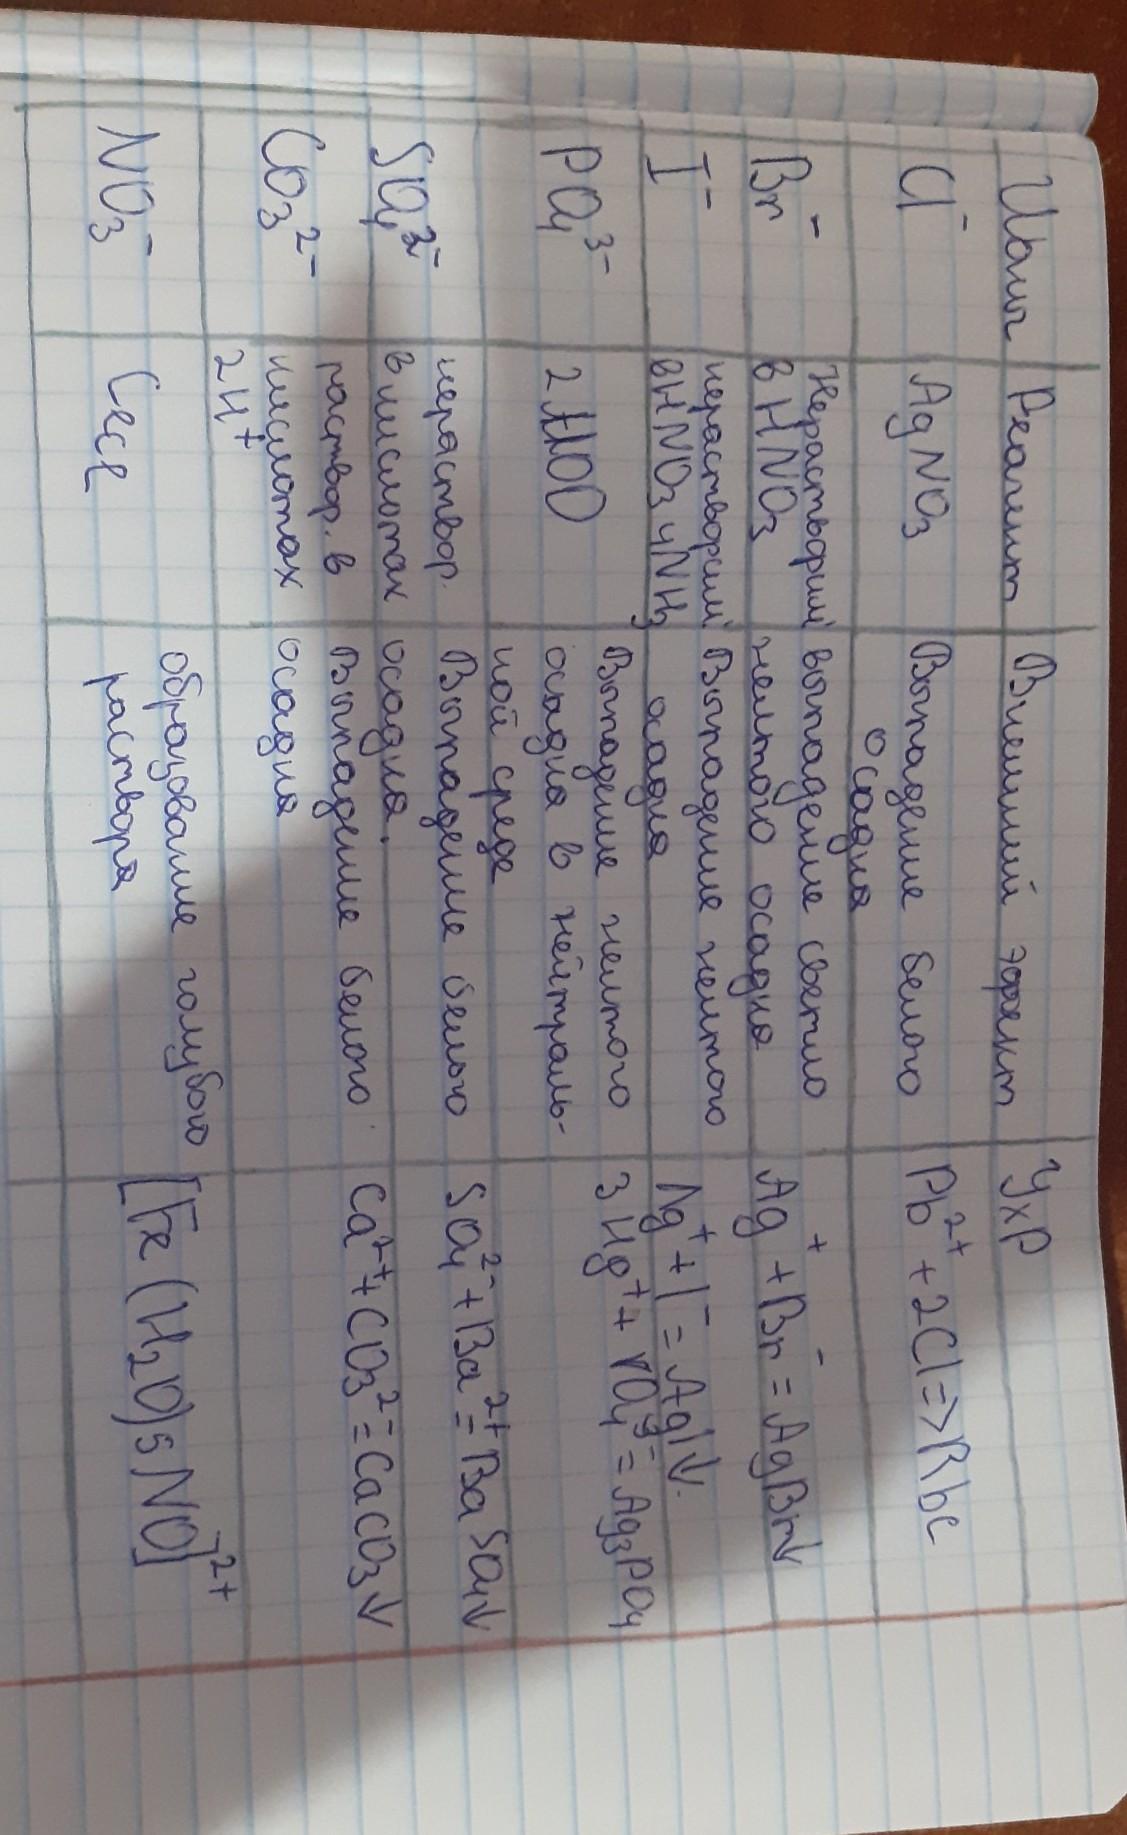 Ионы Реагент Внешний эффект УХР
Cl⁻ AgNO₃ Выпадение белого осадка Pb²⁺ + 2Cl =>
Br⁻ нерастворим в HNO₃ выпадение светло желтого осадка Ag⁺ + Br⁻ = AgBr↓
I⁻ нерастворим в HNO₃ и NH₃ Выпадение желтого осадка Ag⁺ + I⁻ = AgI↓
PO₄³⁻ Выпадение желтого осадка в нейтраль-
ной среде = Ag₃PO₄
SO₄²⁻ нераствор. в кислотах Выпадение белого осадка. SO₄²⁻ + Ba²⁺ = BaSO₄↓
CO₃²⁻ раствор. в кислотах 2H⁺ Выпадение белого осадка Ca²⁺ + CO₃²⁻ = CaCO₃↓
NO₃⁻ образование голубого раствора [Fe(H₂O)₅NO]²⁺